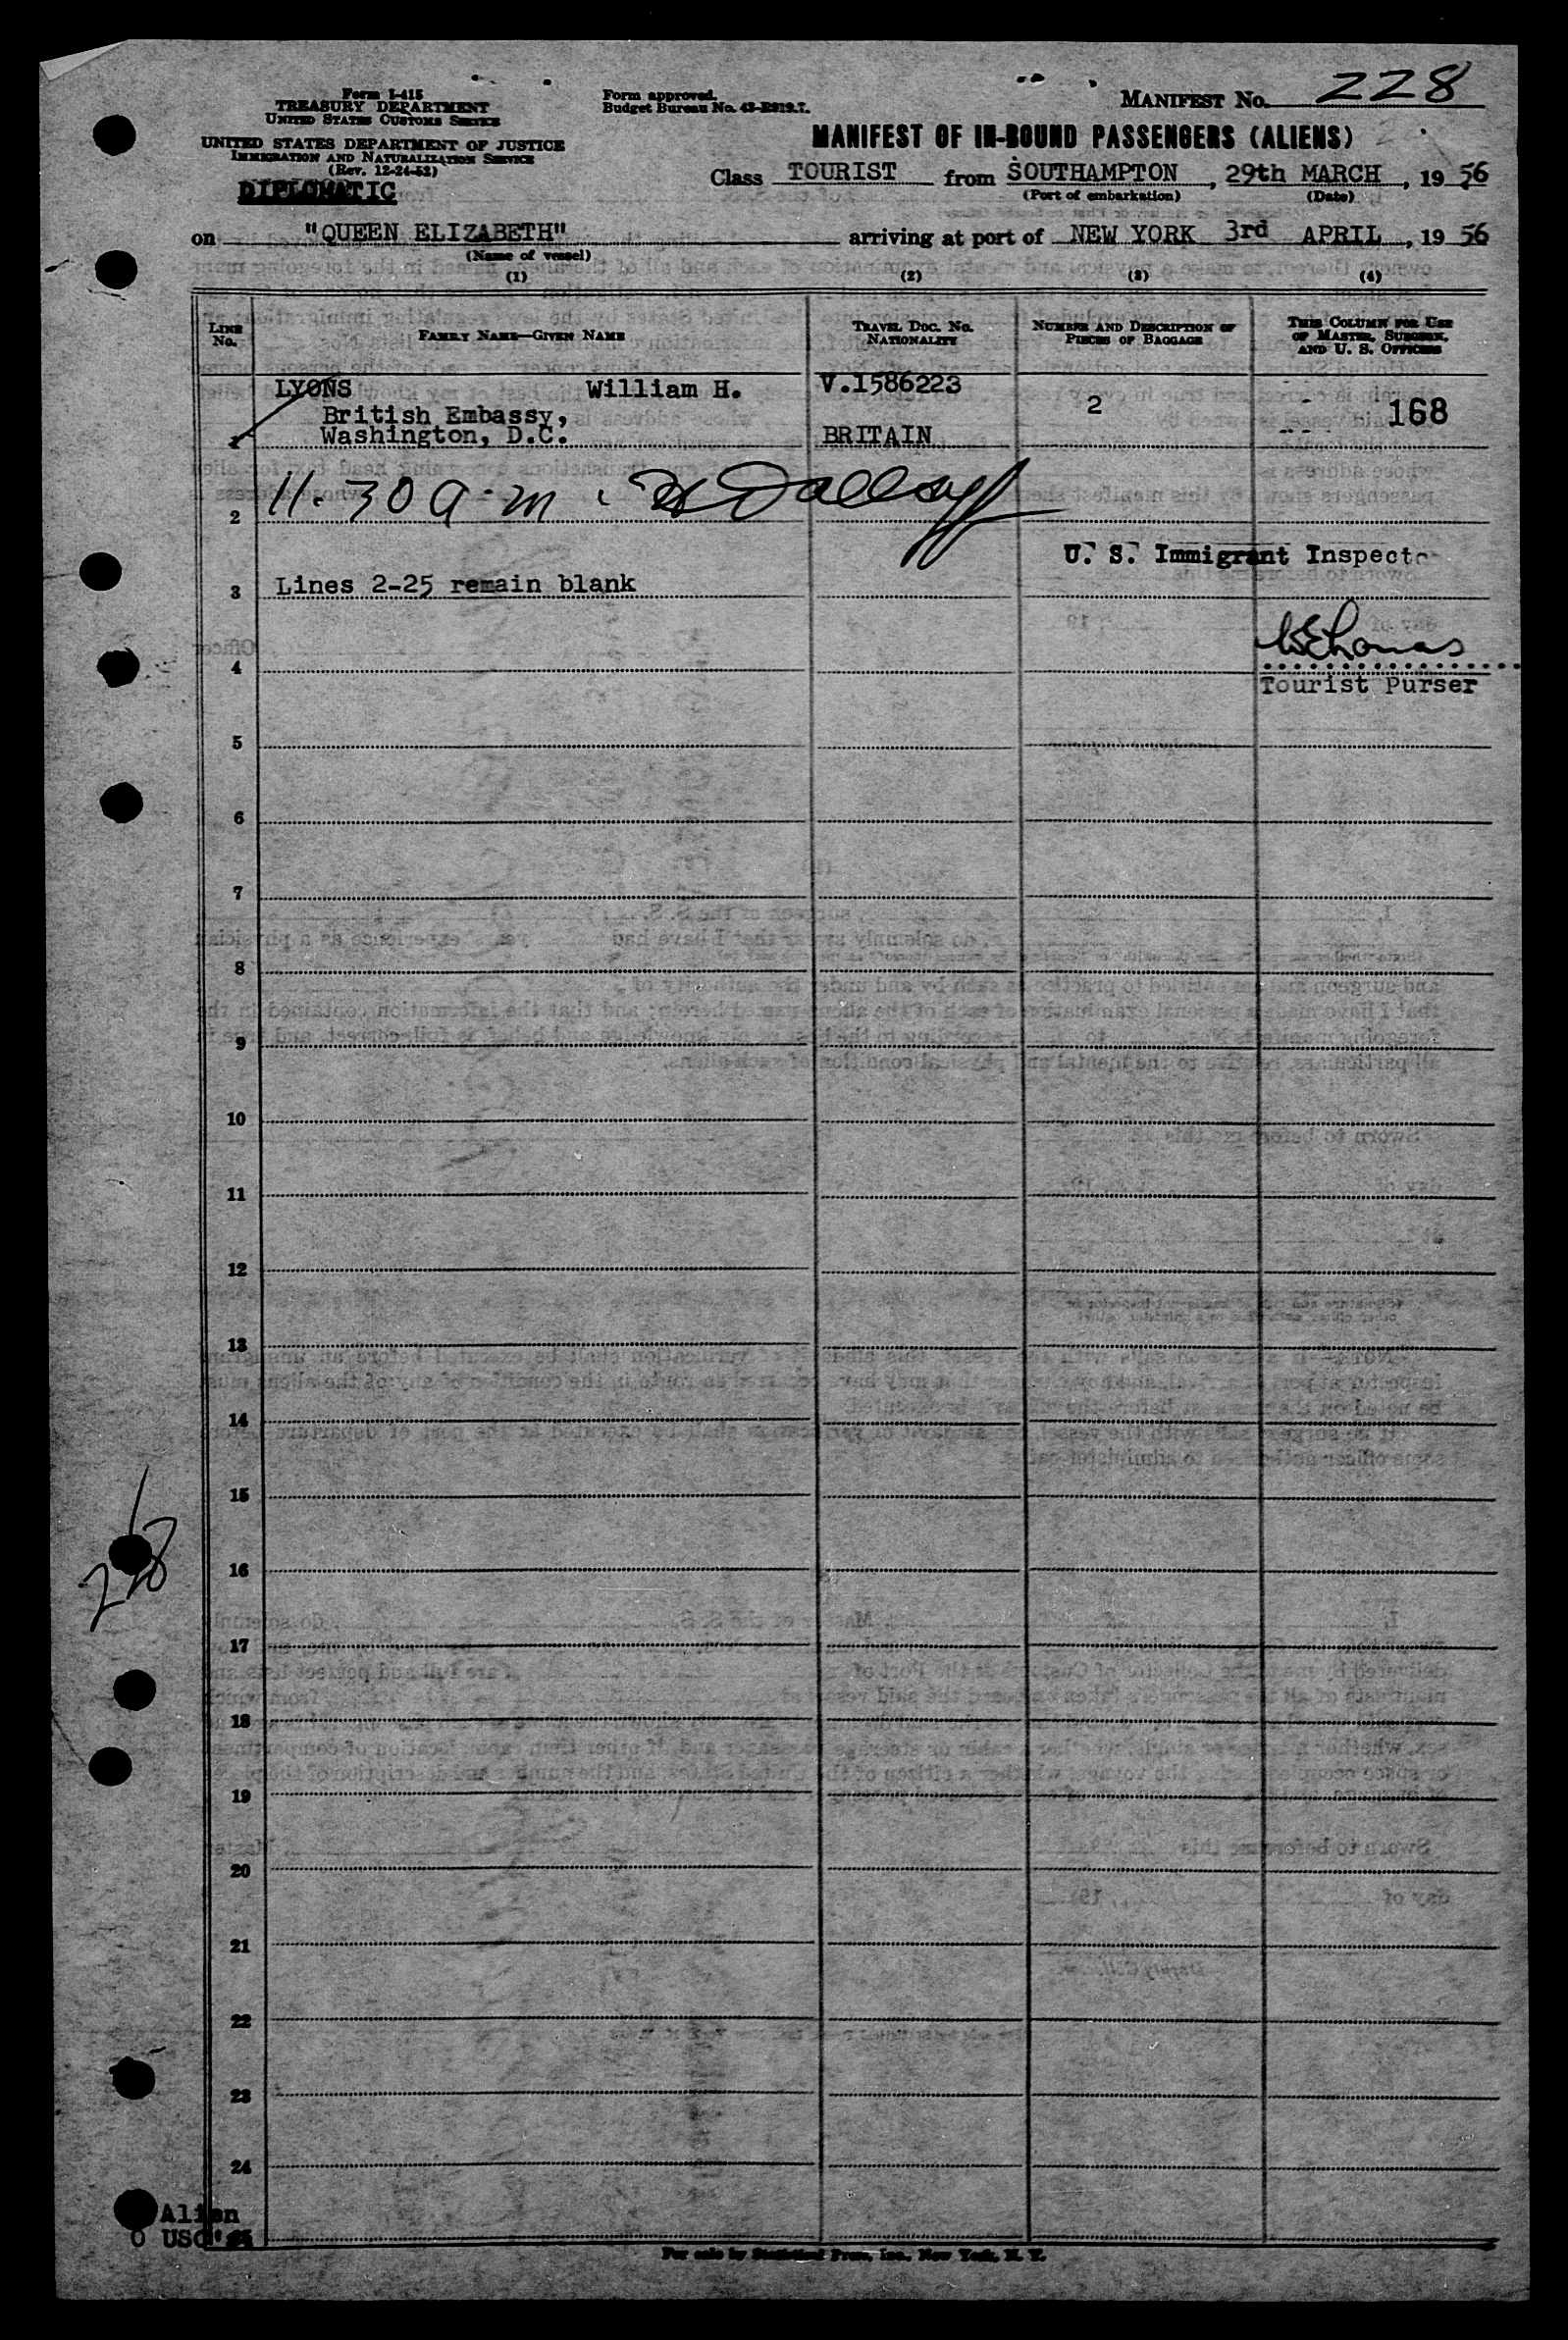 Form I-415
TREASURY DEPARTMENT
UNITED STATES CUSTOMS SERVICE
UNITED STATES DEPARTMENT OF JUSTICE
IMMIGRATION AND NATURALIZATION SERVICE
(Rev. 12-24-52)
DIPLOMATIC
Form approved.
Budget Bureau No. 43-R019.7.
MANIFEST No. 228
MANIFEST OF IN-BOUND PASSENGERS (ALIENS)
Class TOURIST from SOUTHAMPTON, 29th MARCH, 19 56
(Port of embarkation) (Date)
on "QUEEN ELIZABETH" arriving at port of NEW YORK 3rd APRIL, 19 56
(Name of vessel)
(1) (2) (3) (4)
LINE No. FAMILY NAME—GIVEN NAME TRAVEL DOC. No. NATIONALITY NUMBER AND DESCRIPTION OF PIECES OF BAGGAGE THIS COLUMN FOR USE OF MASTER, SURGEON, AND U. S. OFFICERS
LYONS William H. V.1586223
British Embassy, 2 168
1 Washington, D.C. BRITAIN
2 11.30 a.m.
U. S. Immigrant Inspector
3 Lines 2-25 remain blank
WEThomas
4
Tourist Purser
5
6
7
8
9
10
11
12
13
14
15
228
16
17
18
19
20
21
22
23
24
Alien
0 USC's 25
For sale by Statistical Press, Inc., New York, N. Y.